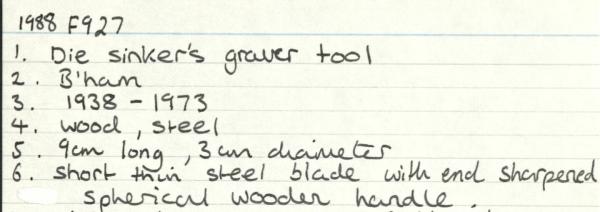 1988 F927
1. Die sinker's graver tool
2. B'ham
3. 1938 - 1973
4. wood, steel
5. 9cm long, 3cm diameter
6. short thin steel blade with end sharpened
spherical wooden handle.